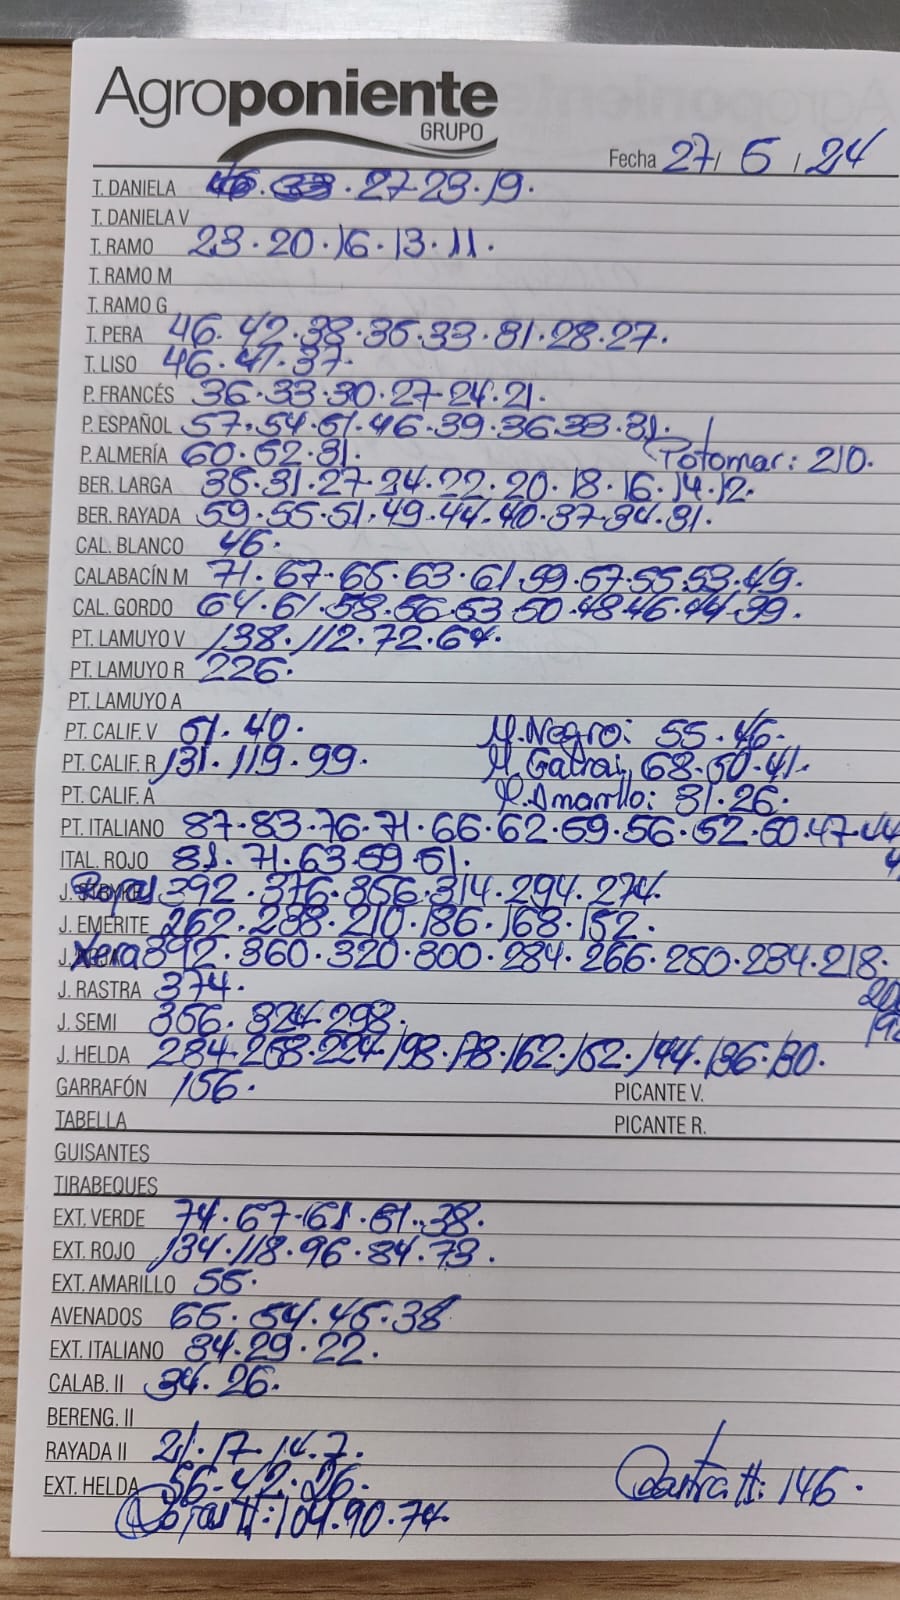 Agroponiente
GRUPO
Fecha 27/ 5 / 24
T. DANIELA 46. 33 . 27-23. 19.
T. DANIELA V
T. RAMO 23. 20. 16. 13. 11.
T. RAMO M
T. RAMO G
T. PERA 46. 42. 38. 35. 33. 31. 28. 27.
T. LISO 46. 41. 37.
P. FRANCÉS 36. 33. 30. 27-24. 21.
P. ESPAÑOL 57. 54. 51. 46. 39. 36. 33. 31.
P. ALMERÍA 60. 52. 31. Totomar: 210.
BER. LARGA 35. 31. 27-24. 22. 20. 18. 16. 14. 12.
BER. RAYADA 59. 55. 51. 49. 44. 40. 37-34. 31.
CAL. BLANCO 46.
CALABACÍN M 71. 67. 65. 63. 61. 59. 57. 55. 53. 49.
CAL. GORDO 64. 61. 58. 56. 53. 50. 48. 46. 44. 39.
PT. LAMUYO V 138. 112. 72. 64.
PT. LAMUYO R 226.
PT. LAMUYO A
PT. CALIF. V 51. 40. M. Negro: 55. 46.
PT. CALIF. R 131. 119. 99. M. Galia: 68. 50. 41.
PT. CALIF. A M. Amarillo: 31. 26.
PT. ITALIANO 87-83. 76. 71. 66. 62. 59. 56. 52. 50. 47-44
ITAL. ROJO 81. 71. 63. 59. 51.
Roja 392. 376. 356. 314. 294. 274.
J. EMERITE 262. 238. 210. 186. 168. 152.
Xera 392. 360. 320. 300. 284. 266. 250. 234. 218.
J. RASTRA 374.
J. SEMI 356. 324. 298.
J. HELDA 284. 258. 224. 198. 178. 162. 152. 144. 136. 130.
GARRAFÓN 156. PICANTE V.
TABELLA PICANTE R.
GUISANTES
TIRABEQUES
EXT. VERDE 74. 67. 61. 51. 38.
EXT. ROJO 134. 118. 96. 84. 73.
EXT. AMARILLO 55.
AVENADOS 65. 54. 45. 38
EXT. ITALIANO 34. 29. 22.
CALAB. II 34. 26.
BERENG. II
RAYADA II 21. 17. 14. 7.
EXT. HELDA 56-42. 26. Rastra II: 146.
Rojas II: 104. 90. 74.